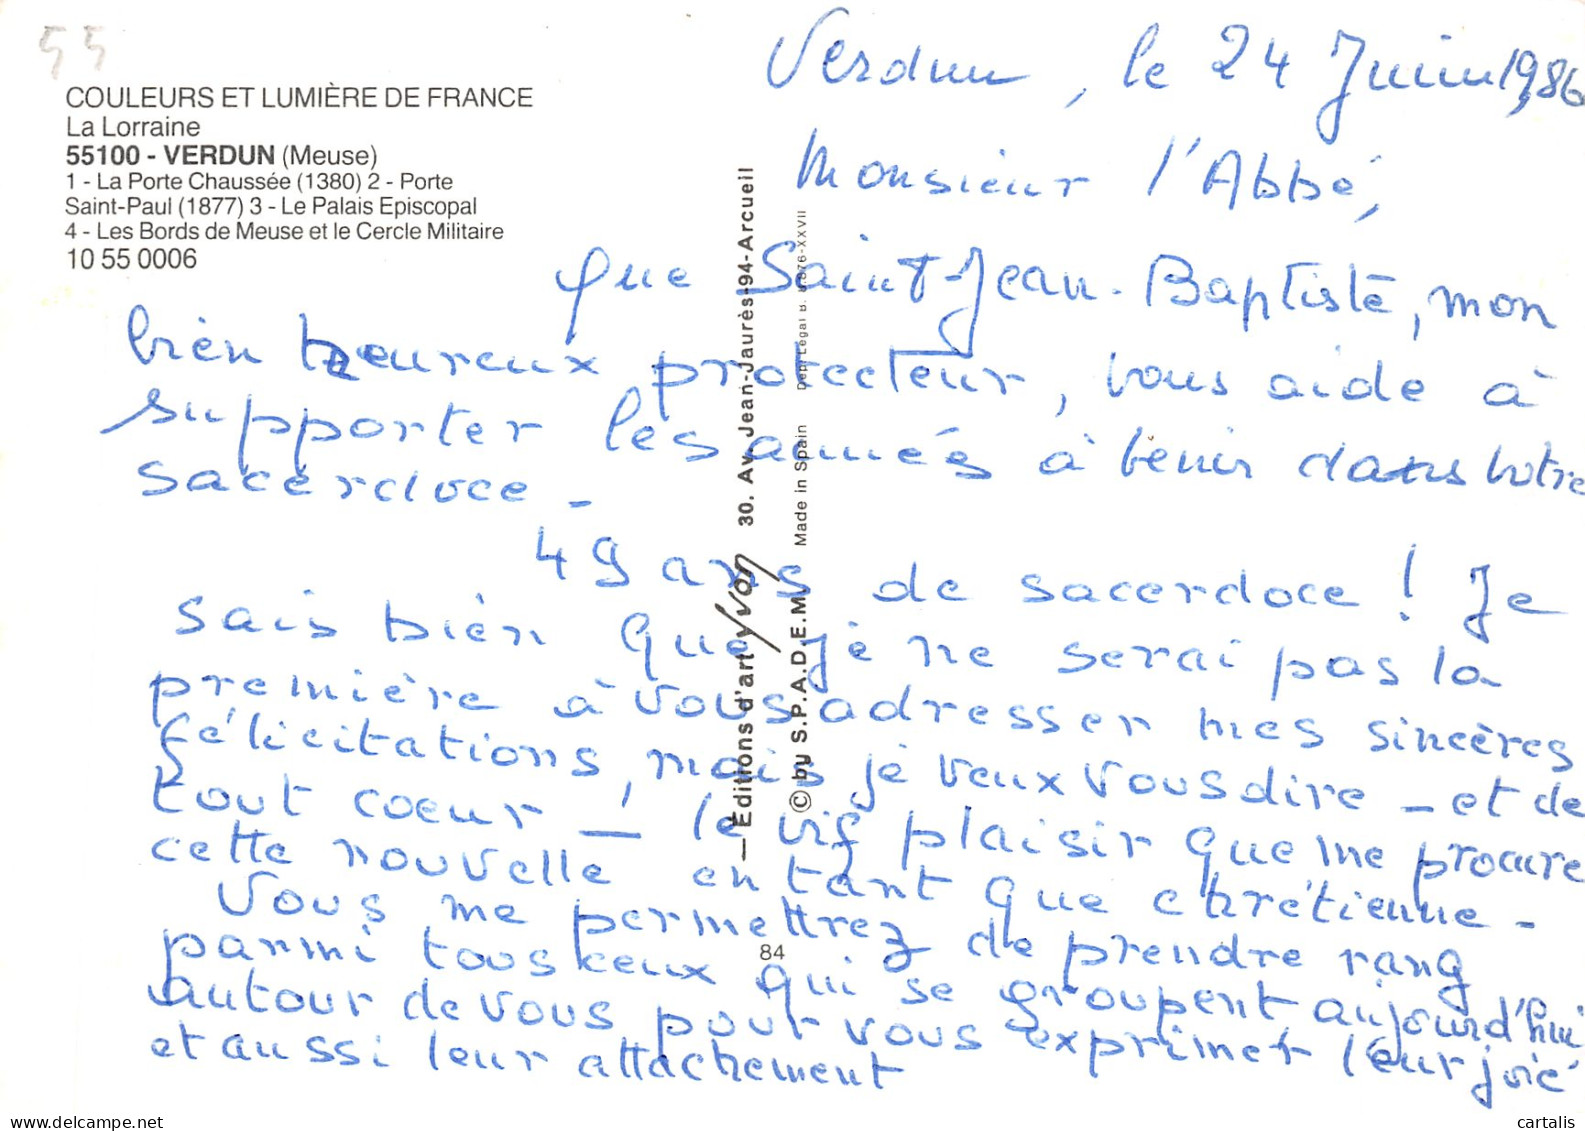 55
COULEURS ET LUMIÈRE DE FRANCE
La Lorraine
55100 - VERDUN (Meuse)
1 - La Porte Chaussée (1380) 2 - Porte
Saint-Paul (1877) 3 - Le Palais Episcopal
4 - Les Bords de Meuse et le Cercle Militaire
10 55 0006
Verdun, le 24 Juin 1986
Monsieur l'Abbé,
que Saint-Jean-Baptiste, mon
bien heureux protecteur, vous aide à
supporter les années à venir dans votre
sacerdoce -
49 ans de sacerdoce ! Je
sais bien que je ne serai pas la
première à vous adresser mes sincères
félicitations, mais je veux vous dire - et de
tout coeur - le vif plaisir que me procure
cette nouvelle en tant que chrétienne -
Vous me permettrez de prendre rang
parmi tous ceux qui se groupent aujourd'hui
autour de vous pour vous exprimer leur joie
et aussi leur attachement
— Editions d'art yvon 30. Av. Jean-Jaurès-94-Arcueil
© by S.P.A.D.E.M. Made in Spain Dep. Légal B.
84
www.delcampe.net
cartalis